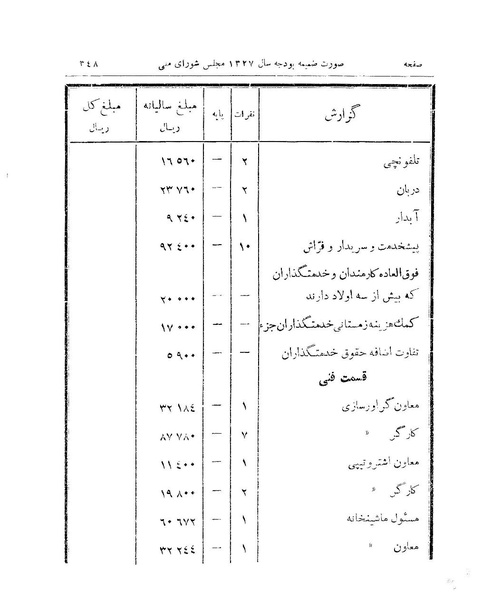 صفحه صورت ضمیمه بودجه سال ۱۳۲۷ مجلس شورای ملی ۳۴۸
گزارش نفرات پایه مبلغ سالیانه ریال مبلغ کل ریال
تلفونچی ۲ — ۱۶ ۵۶۰
دربان ۲ — ۲۳ ۷۶۰
آبدار ۱ — ۹ ۲۴۰
پیشخدمت و سریدار و فرّاش ۱۰ — ۹۲ ۴۰۰
فوق العاده کارمندان و خدمتگذاران
که بیش از سه اولاد دارند — — ۲۰ ۰۰۰
کمك هزینه زمستانی خدمتگذاران جزء — — ۱۷ ۰۰۰
تفاوت اضافه حقوق خدمتگذاران — — ۵ ۹۰۰
قسمت فنی
معاون گراورسازی ۱ — ۳۲ ۱۸۴
کارگر » ۷ — ۸۷ ۷۸۰
معاون اشتروتیپی ۱ — ۱۱ ۴۰۰
کارگر » ۲ — ۱۹ ۸۰۰
مسئول ماشینخانه ۱ — ۶۰ ۶۷۲
معاون » ۱ — ۳۲ ۲۴۴